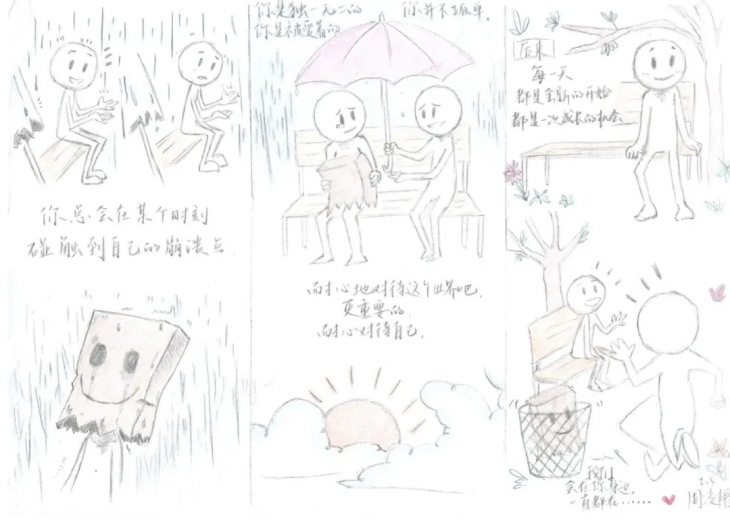 你总会在某个时刻
碰触到自己的崩溃点
你是独一无二的
你是被爱着的
你并不孤单.
耐心地对待这个世界吧.
更重要的.
耐心对待自己.
后来
每一天
都是全新的开始
都是一次成长的机会
我们
会在你身边,
一直都在······